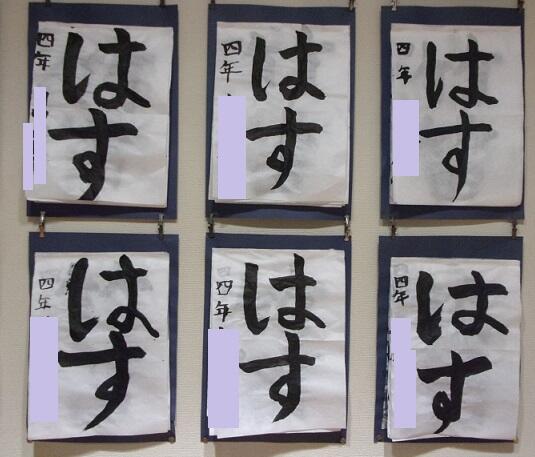 はす
四年
はす
四年
はす
四年
はす
四年
はす
四年
はす
四年